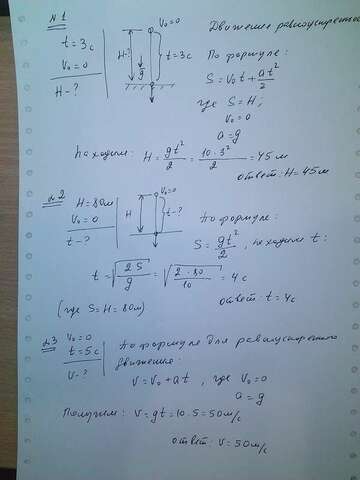 №1
t = 3с
V₀ = 0
H - ?
H-?
g
V₀ = 0
t = 3с
Движение равноускоренное
По формуле:
S = V₀t + at²/2
где S = H;
V₀ = 0
a = g
Находим: H = gt²/2 = 10·3²/2 = 45 м
ответ: H = 45 м
№2
H = 80м
V₀ = 0
t - ?
H
V₀ = 0
t - ?
По формуле:
S = gt²/2, находим t:
t = √(2S/g) = √(2·80/10) = 4 с
(где S = H = 80м)
ответ: t = 4с
№3
V₀ = 0
t = 5с
V - ?
По формуле для равноускоренного
движения:
V = V₀ + at, где V₀ = 0
a = g
Получим: V = gt = 10·5 = 50 м/с
ответ: V = 50 м/с